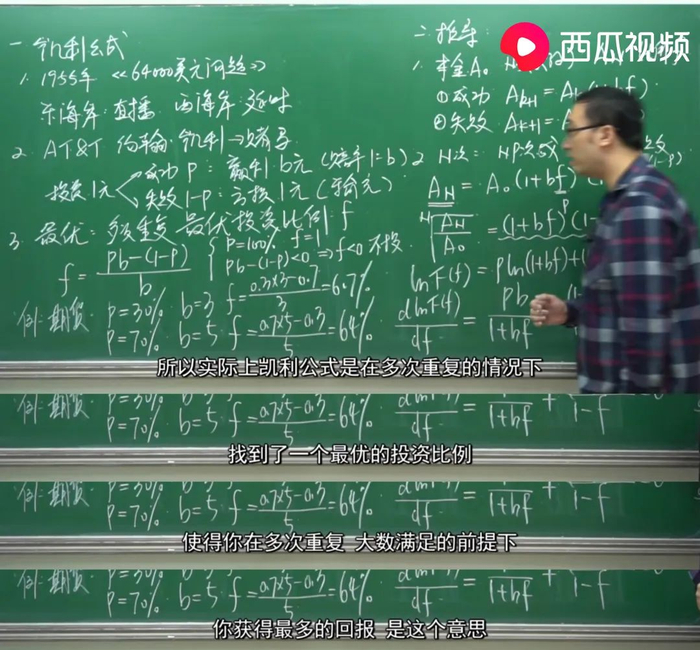 西瓜视频
一 凯利公式
1. 1955年 《64000美元问题》
东海岸 直播 西海岸 延时
2. AT&T 约翰·凯利 →
投资1元
成功 P: 赢利b元 (赔率1:b)
失败 1-P: 亏损1元
3. 最优: 多次重复 最优投资比例 f
f = \frac{Pb-(1-P)}{b}
P=100% f=1
Pb-(1-P)<0 ⇒ f<0 不投
例: 期货 P=30% b=3 f=\frac{0.3×3-0.7}{3}=6.7%
P=70% b=5 f=\frac{0.7×5-0.3}{5}=64%
二 推导:
1. 本金A₀
①成功 A_{k+1}=A_k(1+bf)
②失败 A_{k+1}=
2 N次: NP次成
A_N = A₀(1+bf)
\sqrt[N]{\frac{A_N}{A_0}} = (1+bf)^P(1-
lnF(f) = Pln(1+bf)+
\frac{dlnF(f)}{df} = \frac{Pb}{1+bf}
所以实际上凯利公式是在多次重复的情况下
P=70% b=5 f=\frac{0.7×5-0.3}{5}=64% \frac{}{df} = \frac{}{1+bf} + \frac{}{1-f}
找到了一个最优的投资比例
P=70% b=5 f=\frac{0.7×5-0.3}{5}=64% \frac{}{df} = \frac{}{1+bf} + \frac{}{1-f}
使得你在多次重复 大数满足的前提下
P=70% b=5 f=\frac{0.7×5-0.3}{5}=64% \frac{}{df} = \frac{}{1+bf} + \frac{}{1-f}
你获得最多的回报 是这个意思